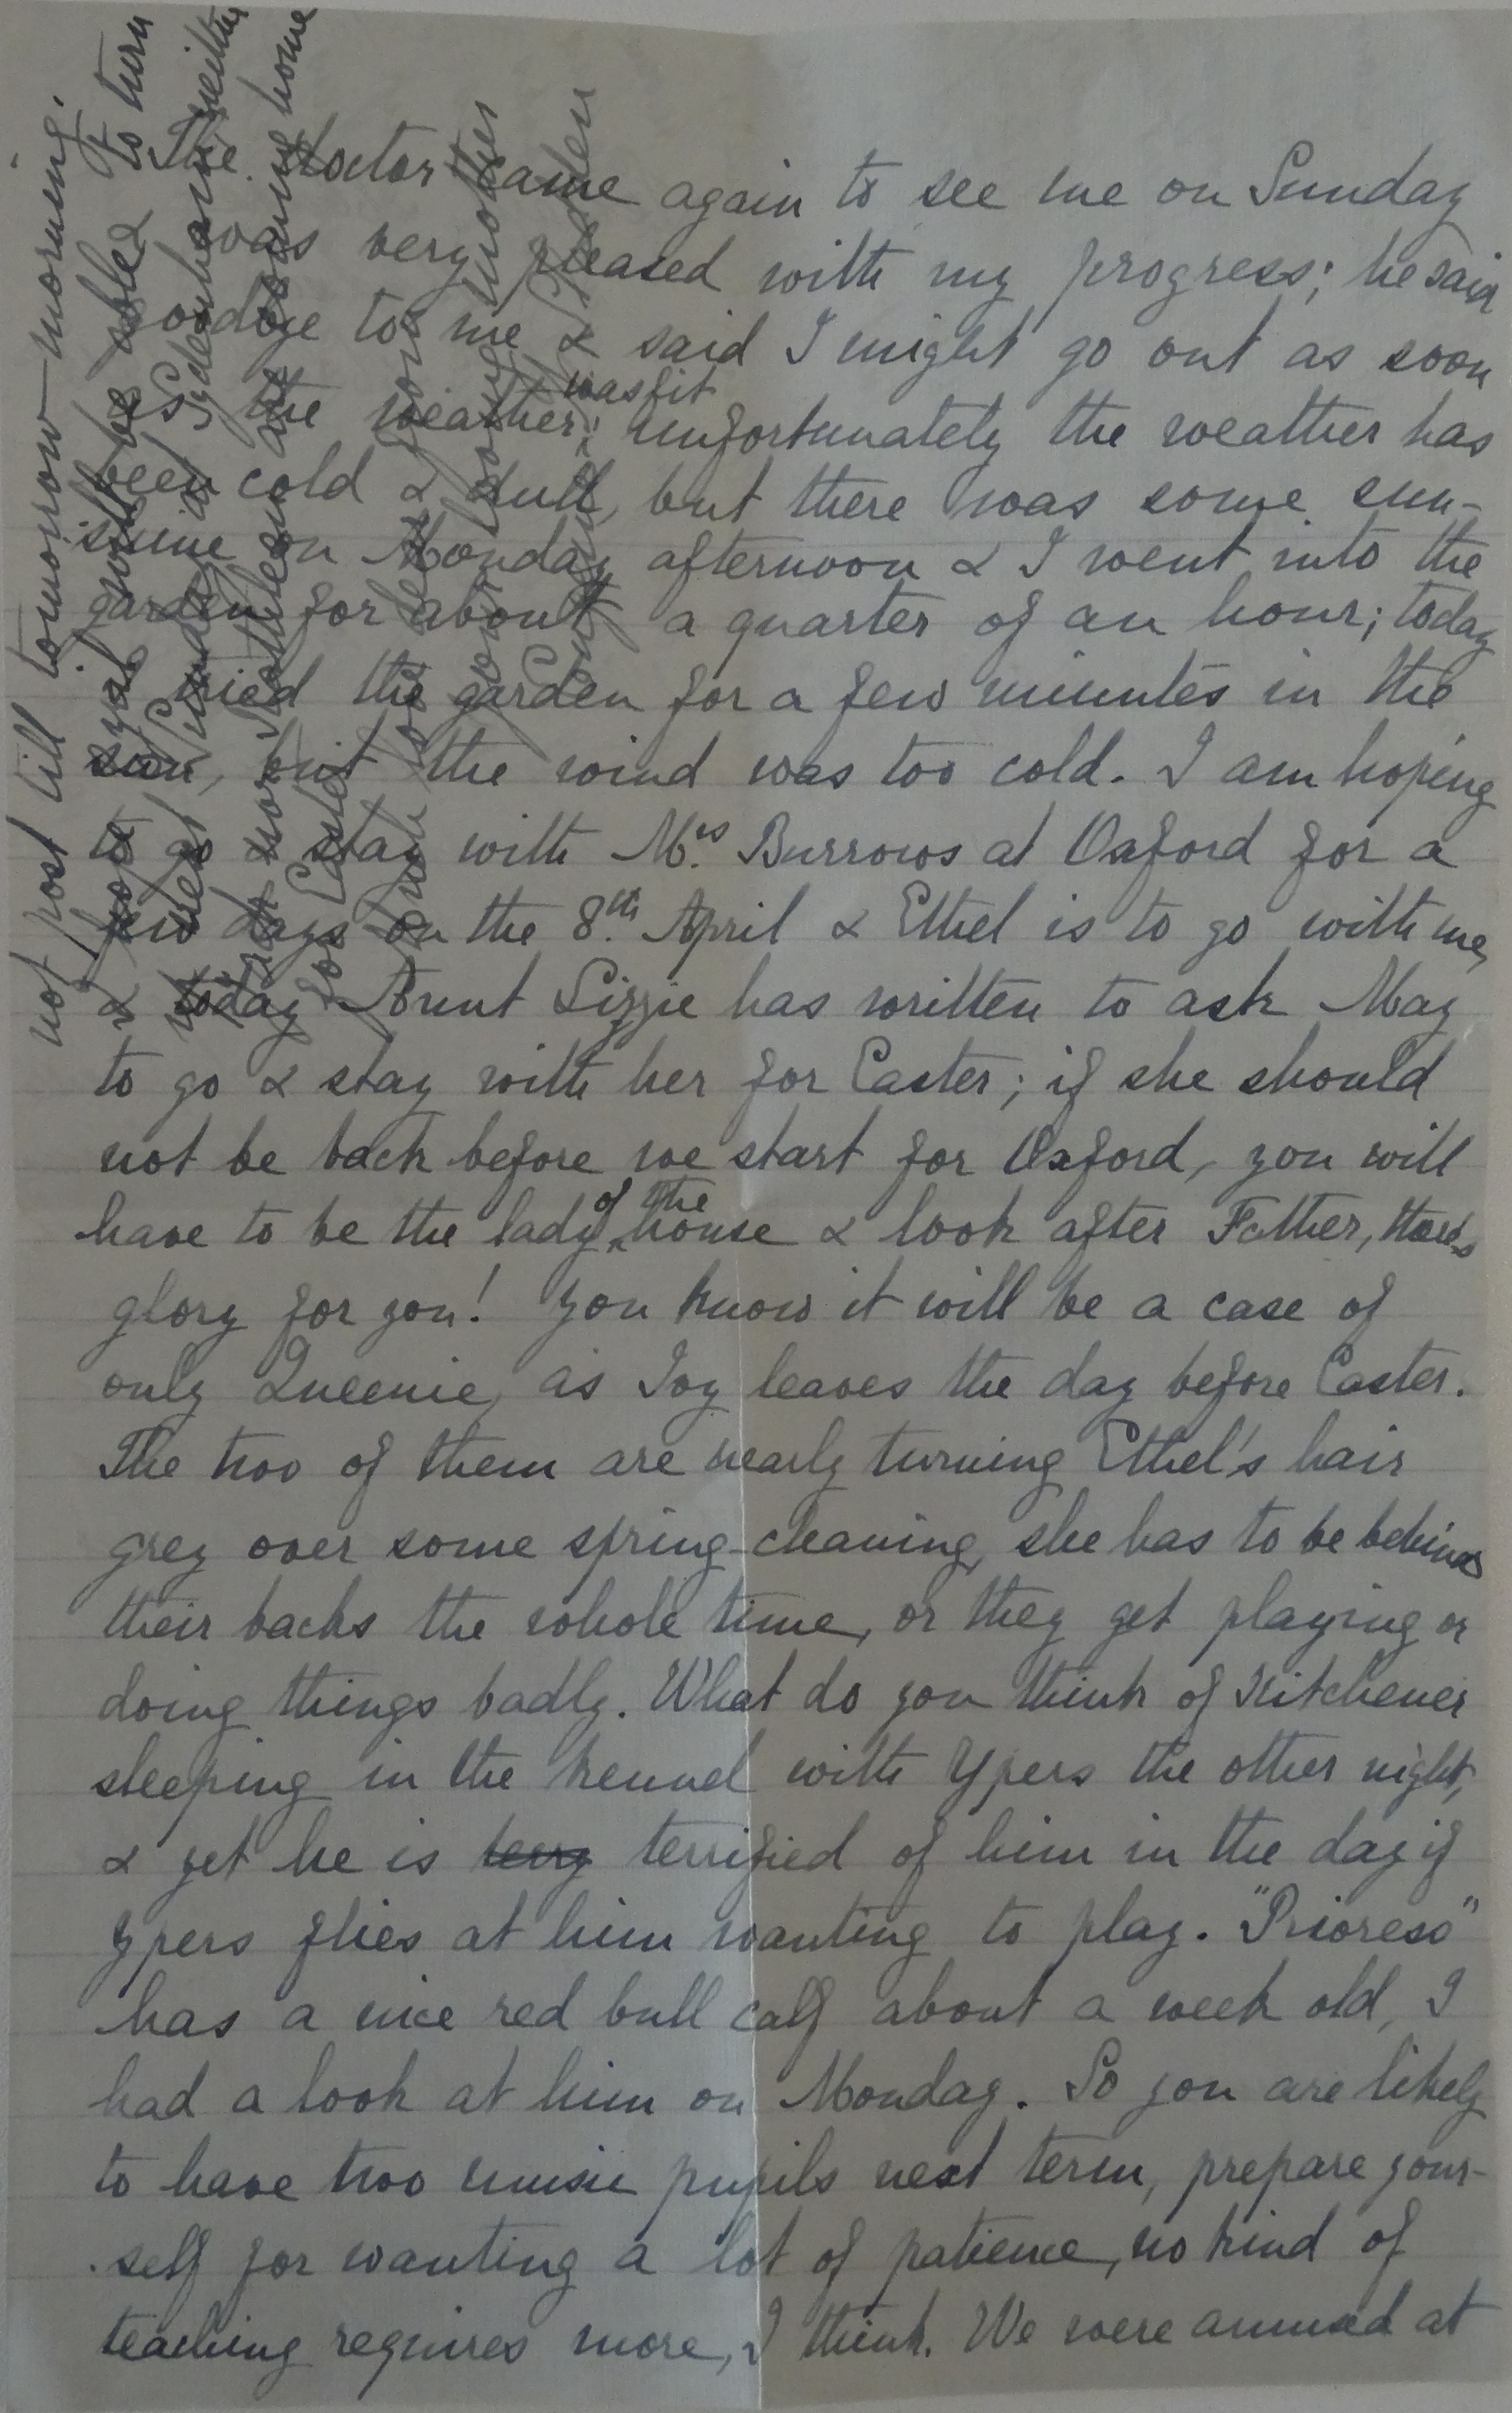 The doctor came again to see me on Sunday
was very pleased with my progress; he said
goodbye to me & said I might go out as soon
as the weather was fit; unfortunately the weather has
been cold & dull, but there was some sun-
shine on Monday afternoon & I went into the
garden for about a quarter of an hour; today
I tried the garden for a few minutes in the
sun, but the wind was too cold. I am hoping
to go & stay with Mrs. Burrows at Oxford for a
few days on the 8th. April & Ethel is to go with me,
& today Aunt Lizzie has written to ask May
to go & stay with her for Easter; if she should
not be back before we start for Oxford, you will
have to be the lady of the house & look after Father, there's
glory for you! You know it will be a case of
only Queenie, as Ivy leaves the day before Easter.
The two of them are nearly turning Ethel's hair
grey over some spring-cleaning, she has to be behind
their backs the whole time, or they get playing or
doing things badly. What do you think of Kitchener
sleeping in the kennel with Ypers the other night,
& yet he is very terrified of him in the day if
Ypers flies at him wanting to play. "Prioress"
has a nice red bull calf about a week old, I
had a look at him on Monday. So you are likely
to have two music pupils next term, prepare your-
self for wanting a lot of patience, no kind of
teaching requires more, I think. We were amused at
not post till tomorrow morning.
I hope you will be able to turn
Sunday at Sydenham
nor Kathleen are coming home
for Easter
Much love from
your loving Mother